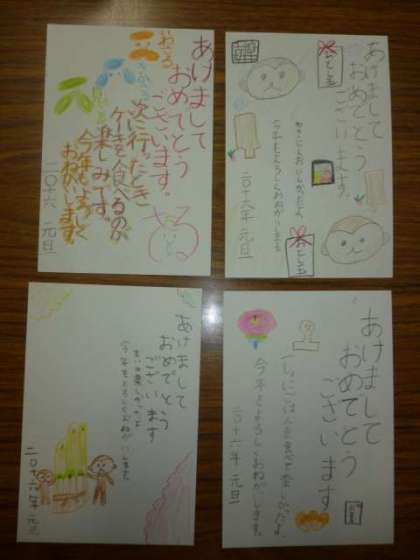 あけまして
おめでとう
ございます。
次に行ったとき
ケーキを食べるのが
楽しみです。
今年もよろしく
おねがいします。
二〇十六 元旦
あけまして
おめでとう
ございます。
今年もよろしくおねがいします
二〇十六年 元旦
お年玉
あけまして
おめでとう
ございます
今年もよろしくおねがいします
二〇十六年 元旦
あけまして
おめでとう
ございます
いっしょにごはんを食べて楽しかったよ。
今年もよろしくおねがいします。
二〇十六年 元旦